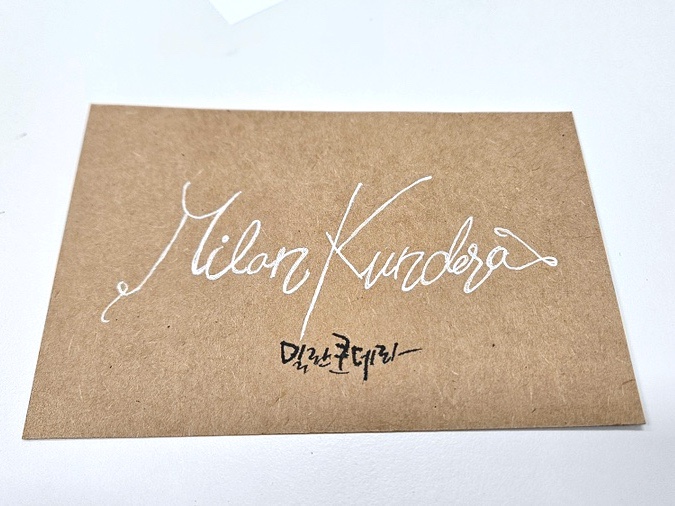 Milan Kundera
밀란쿤데라